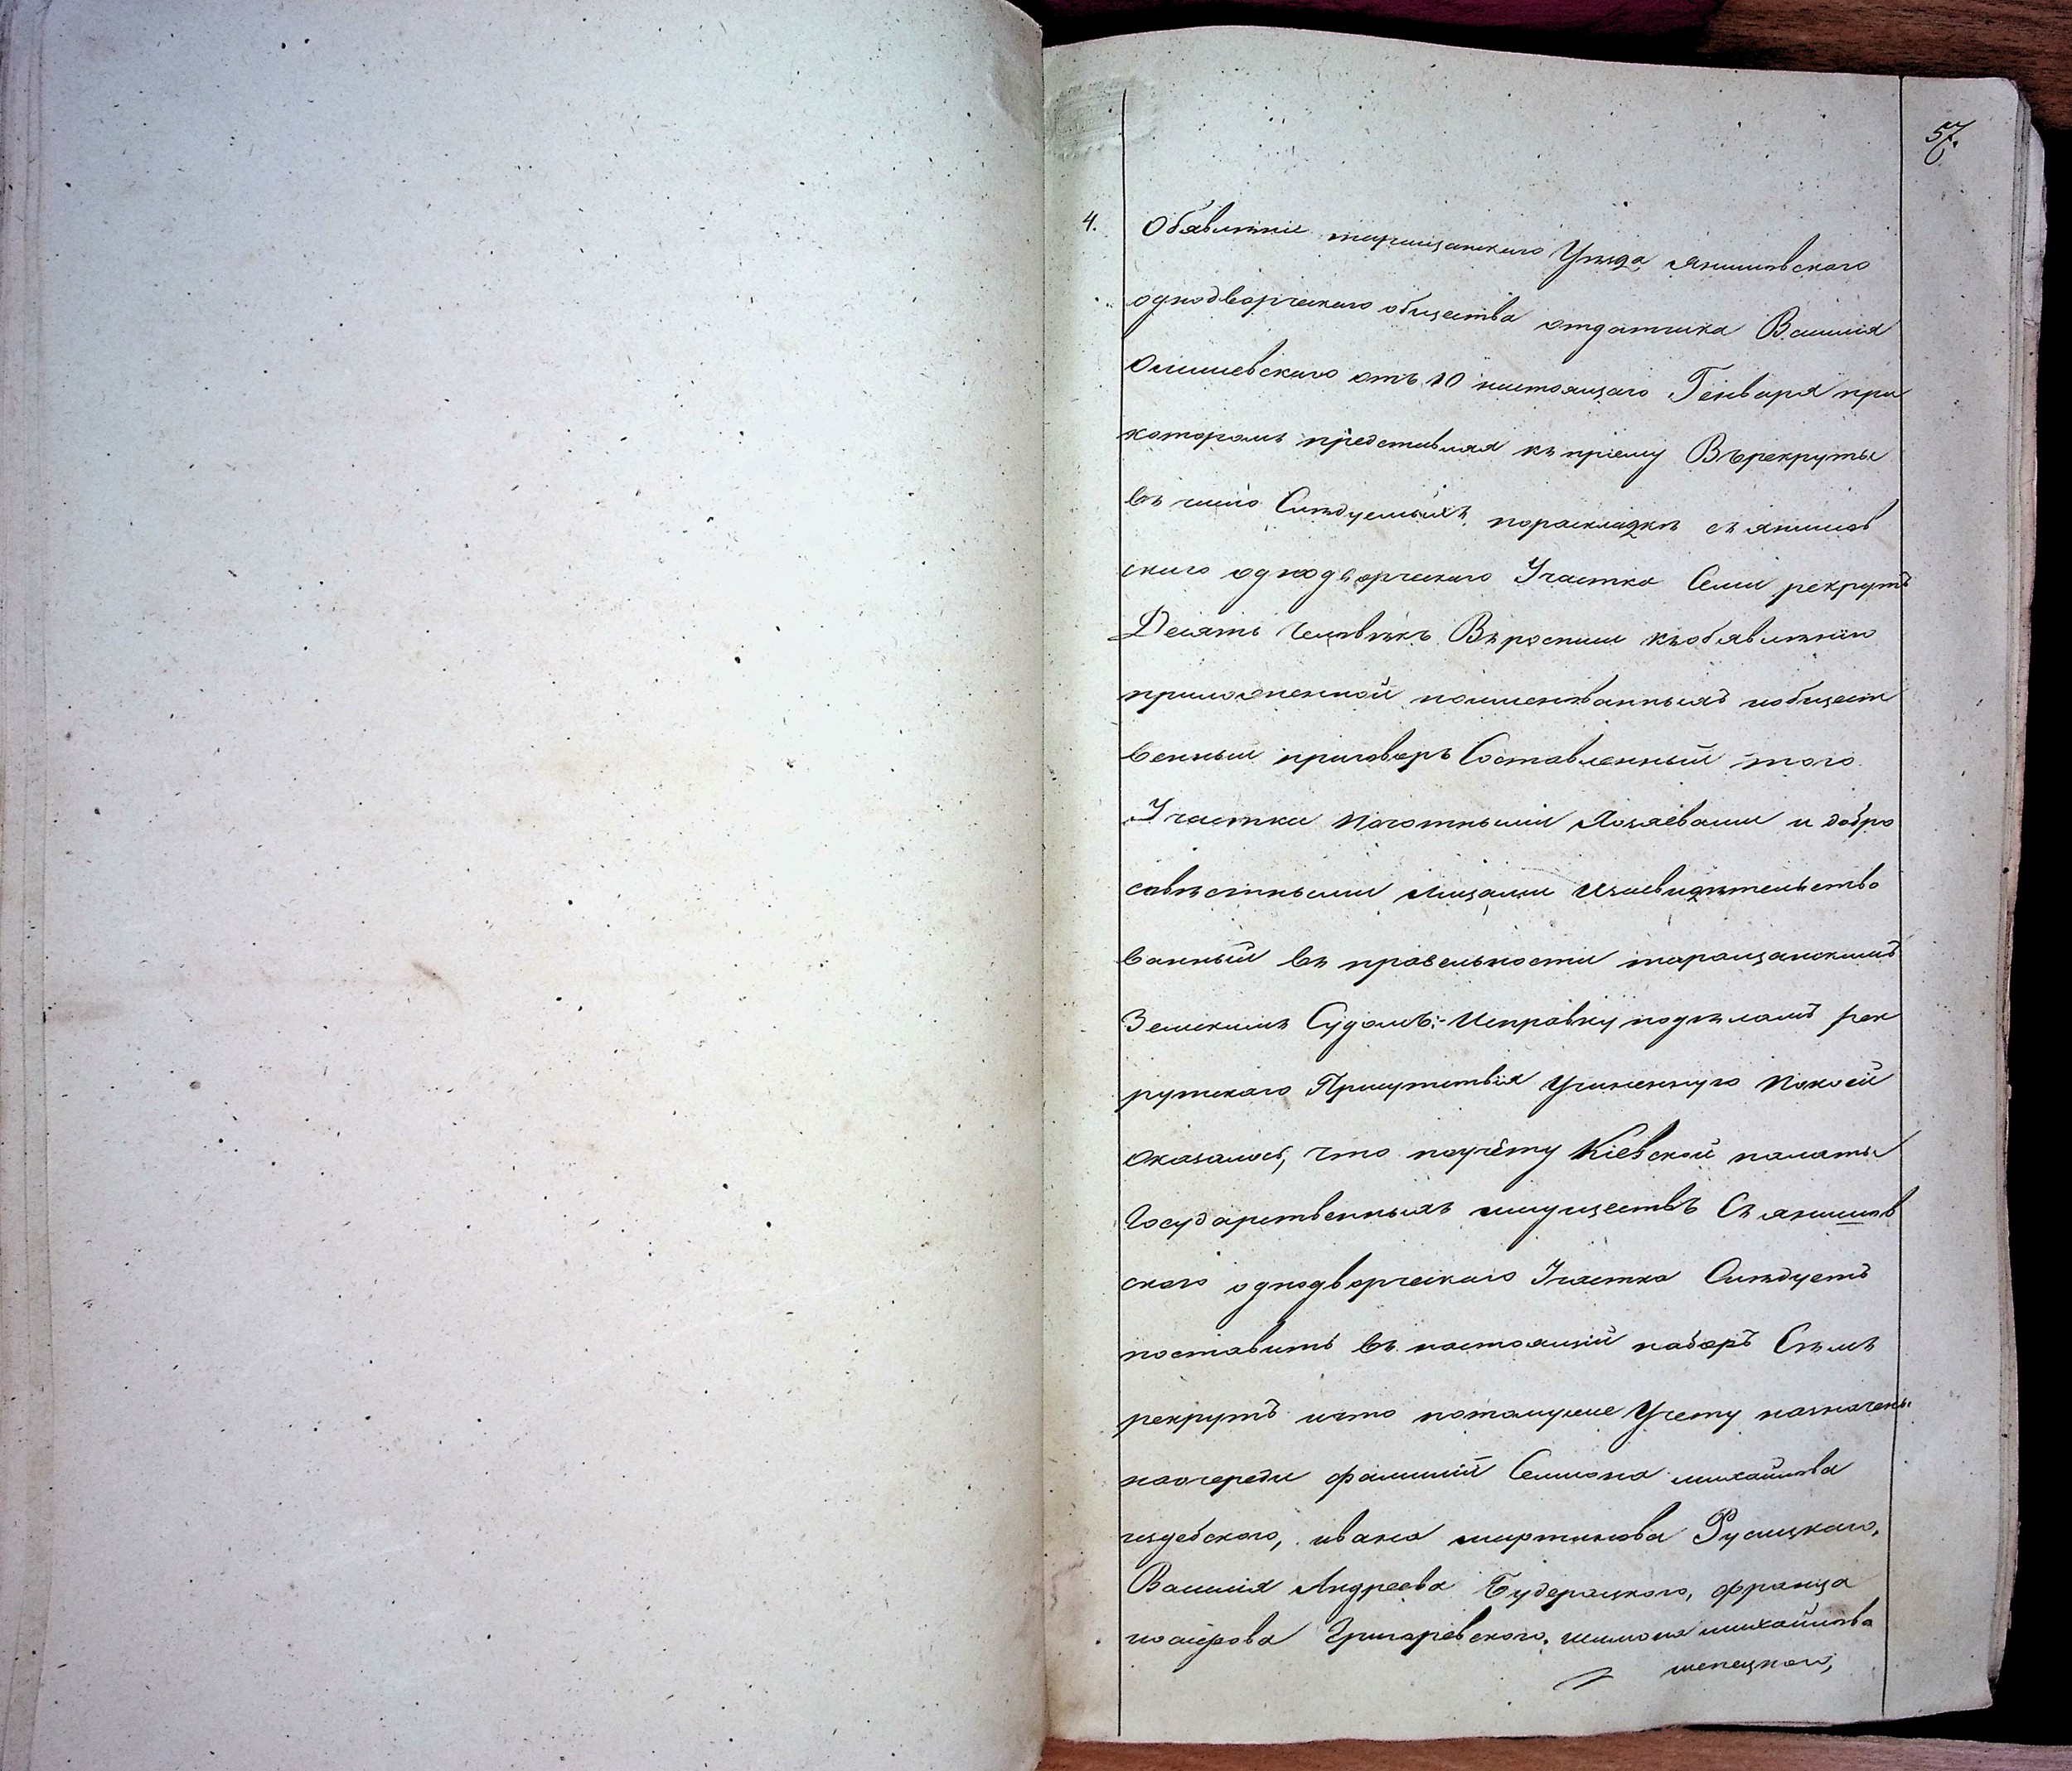 57.
4. Объявленіе таращанскаго Уѣзда, Янишовскаго
однодворческаго общества отдатчика Василія
Олишевскаго отъ 10 настоящаго Генваря при
которомъ представляя къ пріему Въ рекруты
въ число Слѣдуемыхъ пораскладкѣ съ янишов
скаго однодворческаго Участка Семи рекрутъ
Десять Человѣкъ Въ росписи къ объявленію
приложенной поименованныхъ и общест
венный приговоръ Составленный того
Участка Почотными Хозяевами и добро
совѣстными лицами И засвидѣтельство
ванный въ правельности таращанскимъ
Земскимъ Судомъ:- И справку по дѣламъ рек
рутскаго Присутствія Учиненную По коей
оказалось, что по учёту Кіевской палаты
Государственныхъ имуществъ Съ янишов
скаго однодворческаго Участка Слѣдуетъ
поставить въ настоящій наборъ Семь
рекрутъ и что потомуже Учету назначены
на очереди фамилій Семиона михайлова
ивана мартинова Русицкаго,
Василія Андреева франца
Григоревскаго, шимона михайлова
шепецкаго,